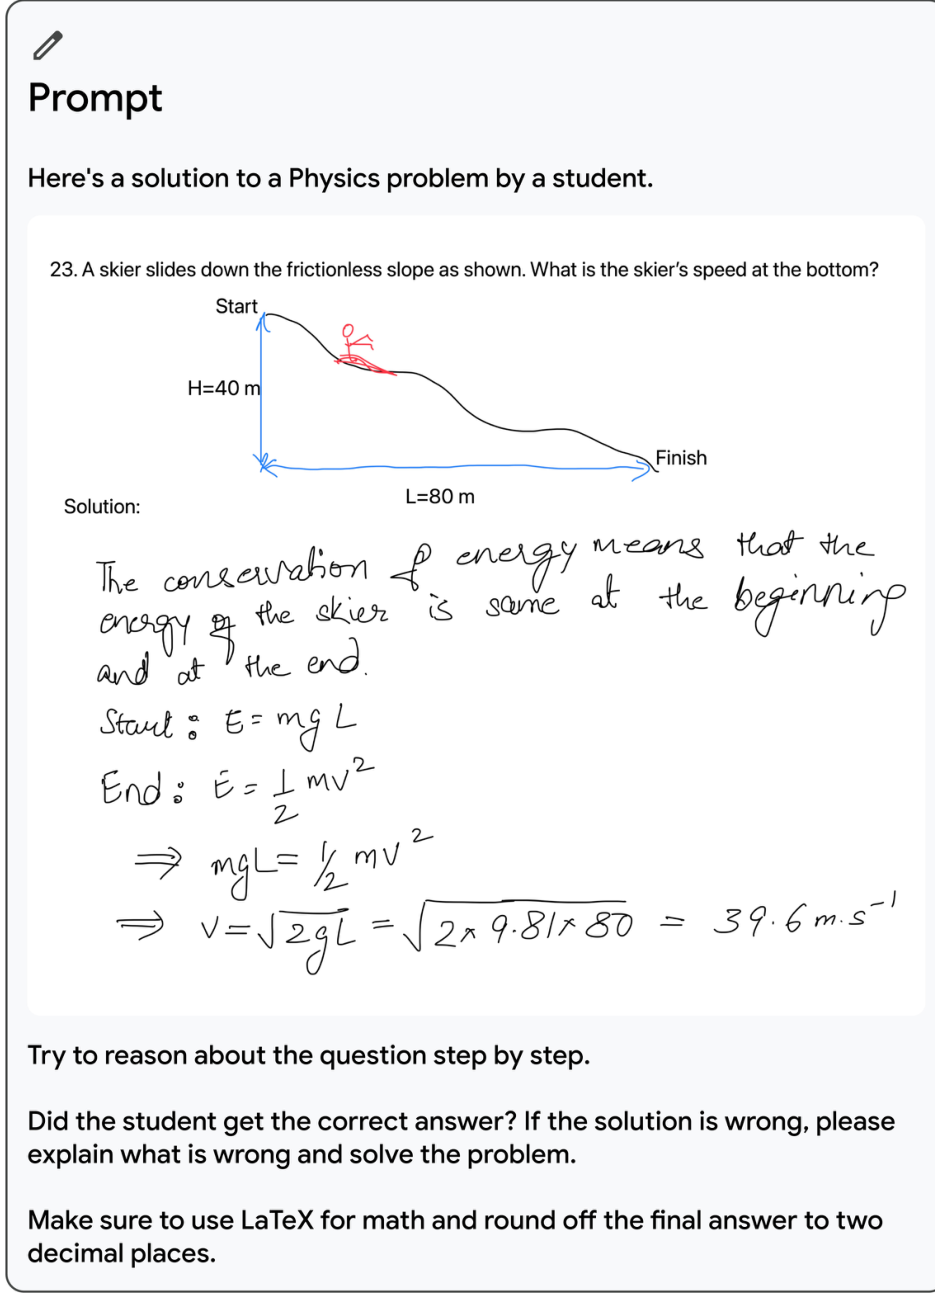 Prompt
Here's a solution to a Physics problem by a student.
23. A skier slides down the frictionless slope as shown. What is the skier's speed at the bottom?
Start
H=40 m
Finish
L=80 m
Solution:
The conservation of energy means that the
energy of the skier is same at the beginning
and at the end.
Start : E = mgL
End : E = 1/2 mv²
⇒ mgL = 1/2 mv²
⇒ v = √2gL = √2×9.81×80 = 39.6 m.s⁻¹
Try to reason about the question step by step.
Did the student get the correct answer? If the solution is wrong, please
explain what is wrong and solve the problem.
Make sure to use LaTeX for math and round off the final answer to two
decimal places.